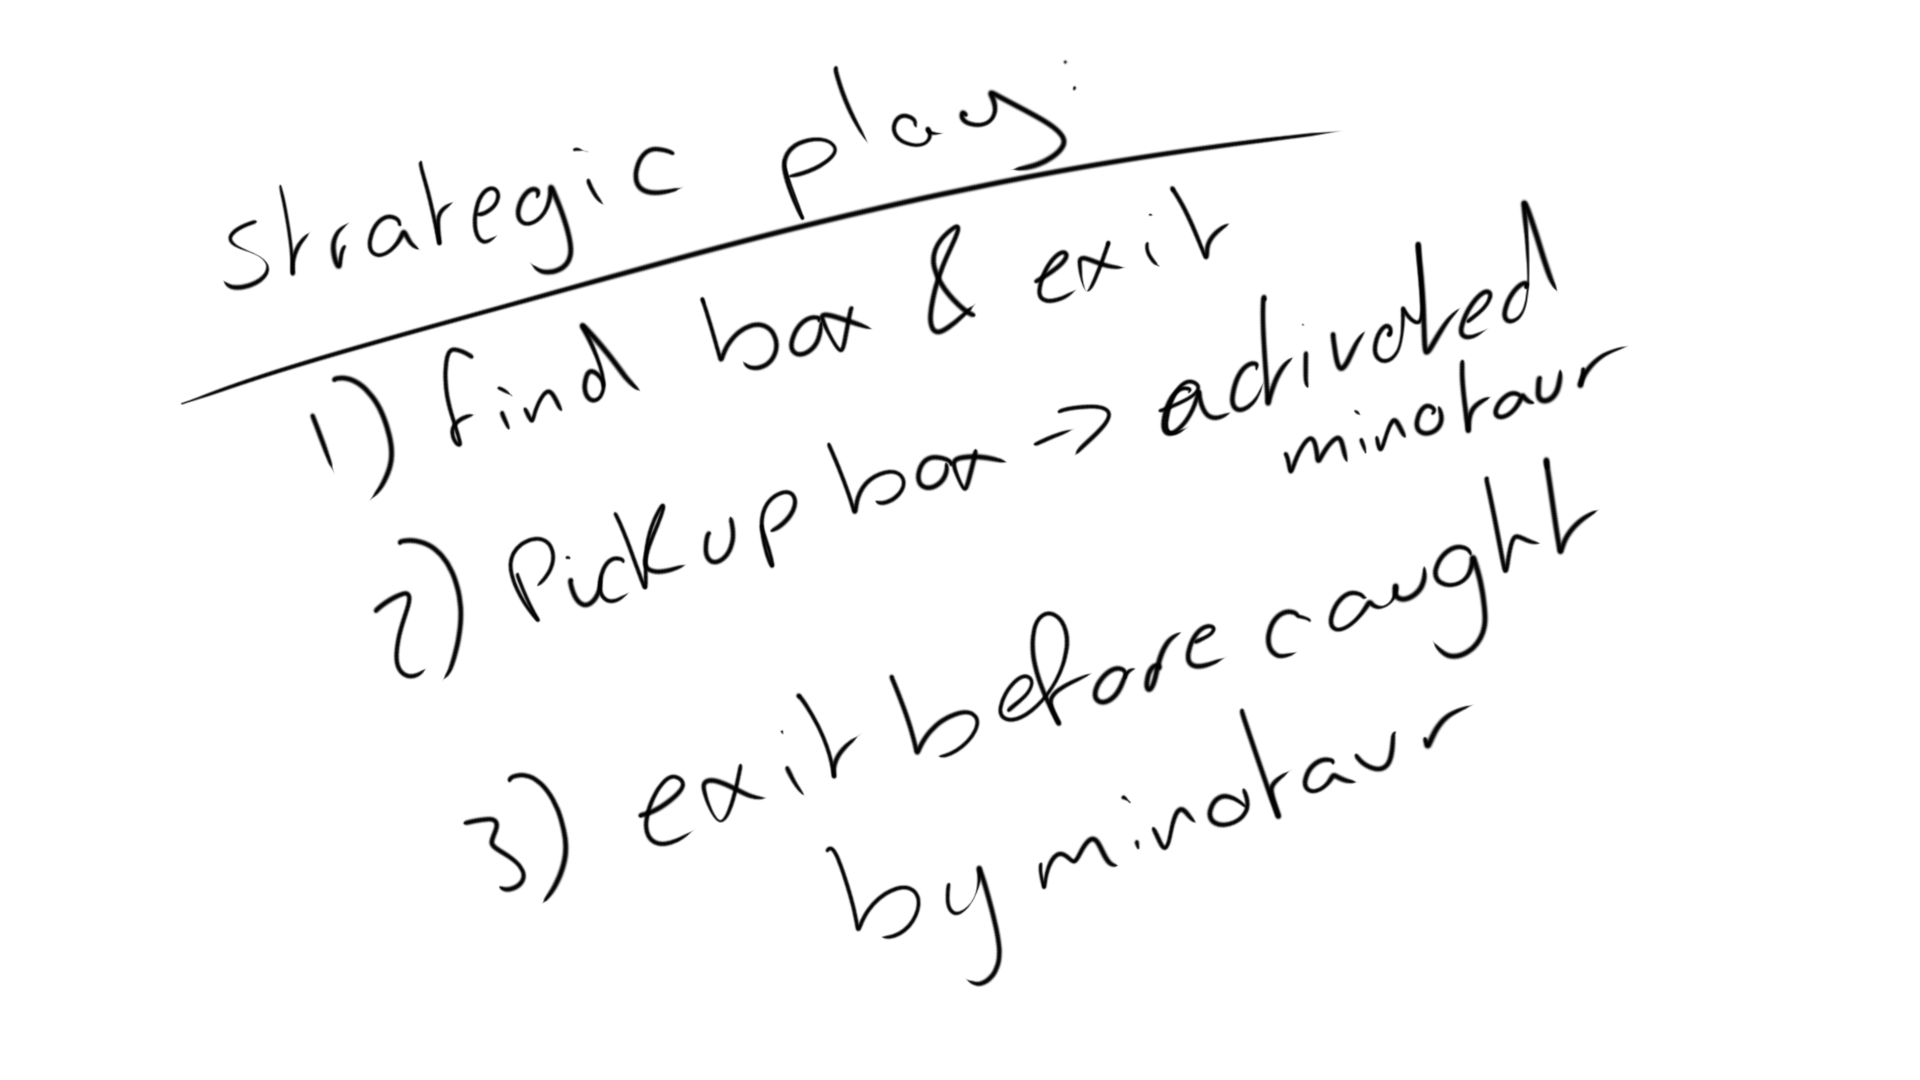 strategic play:
1) find box & exit
2) Pick up box -> activated
minotaur
3) exit before caught
by minotaur